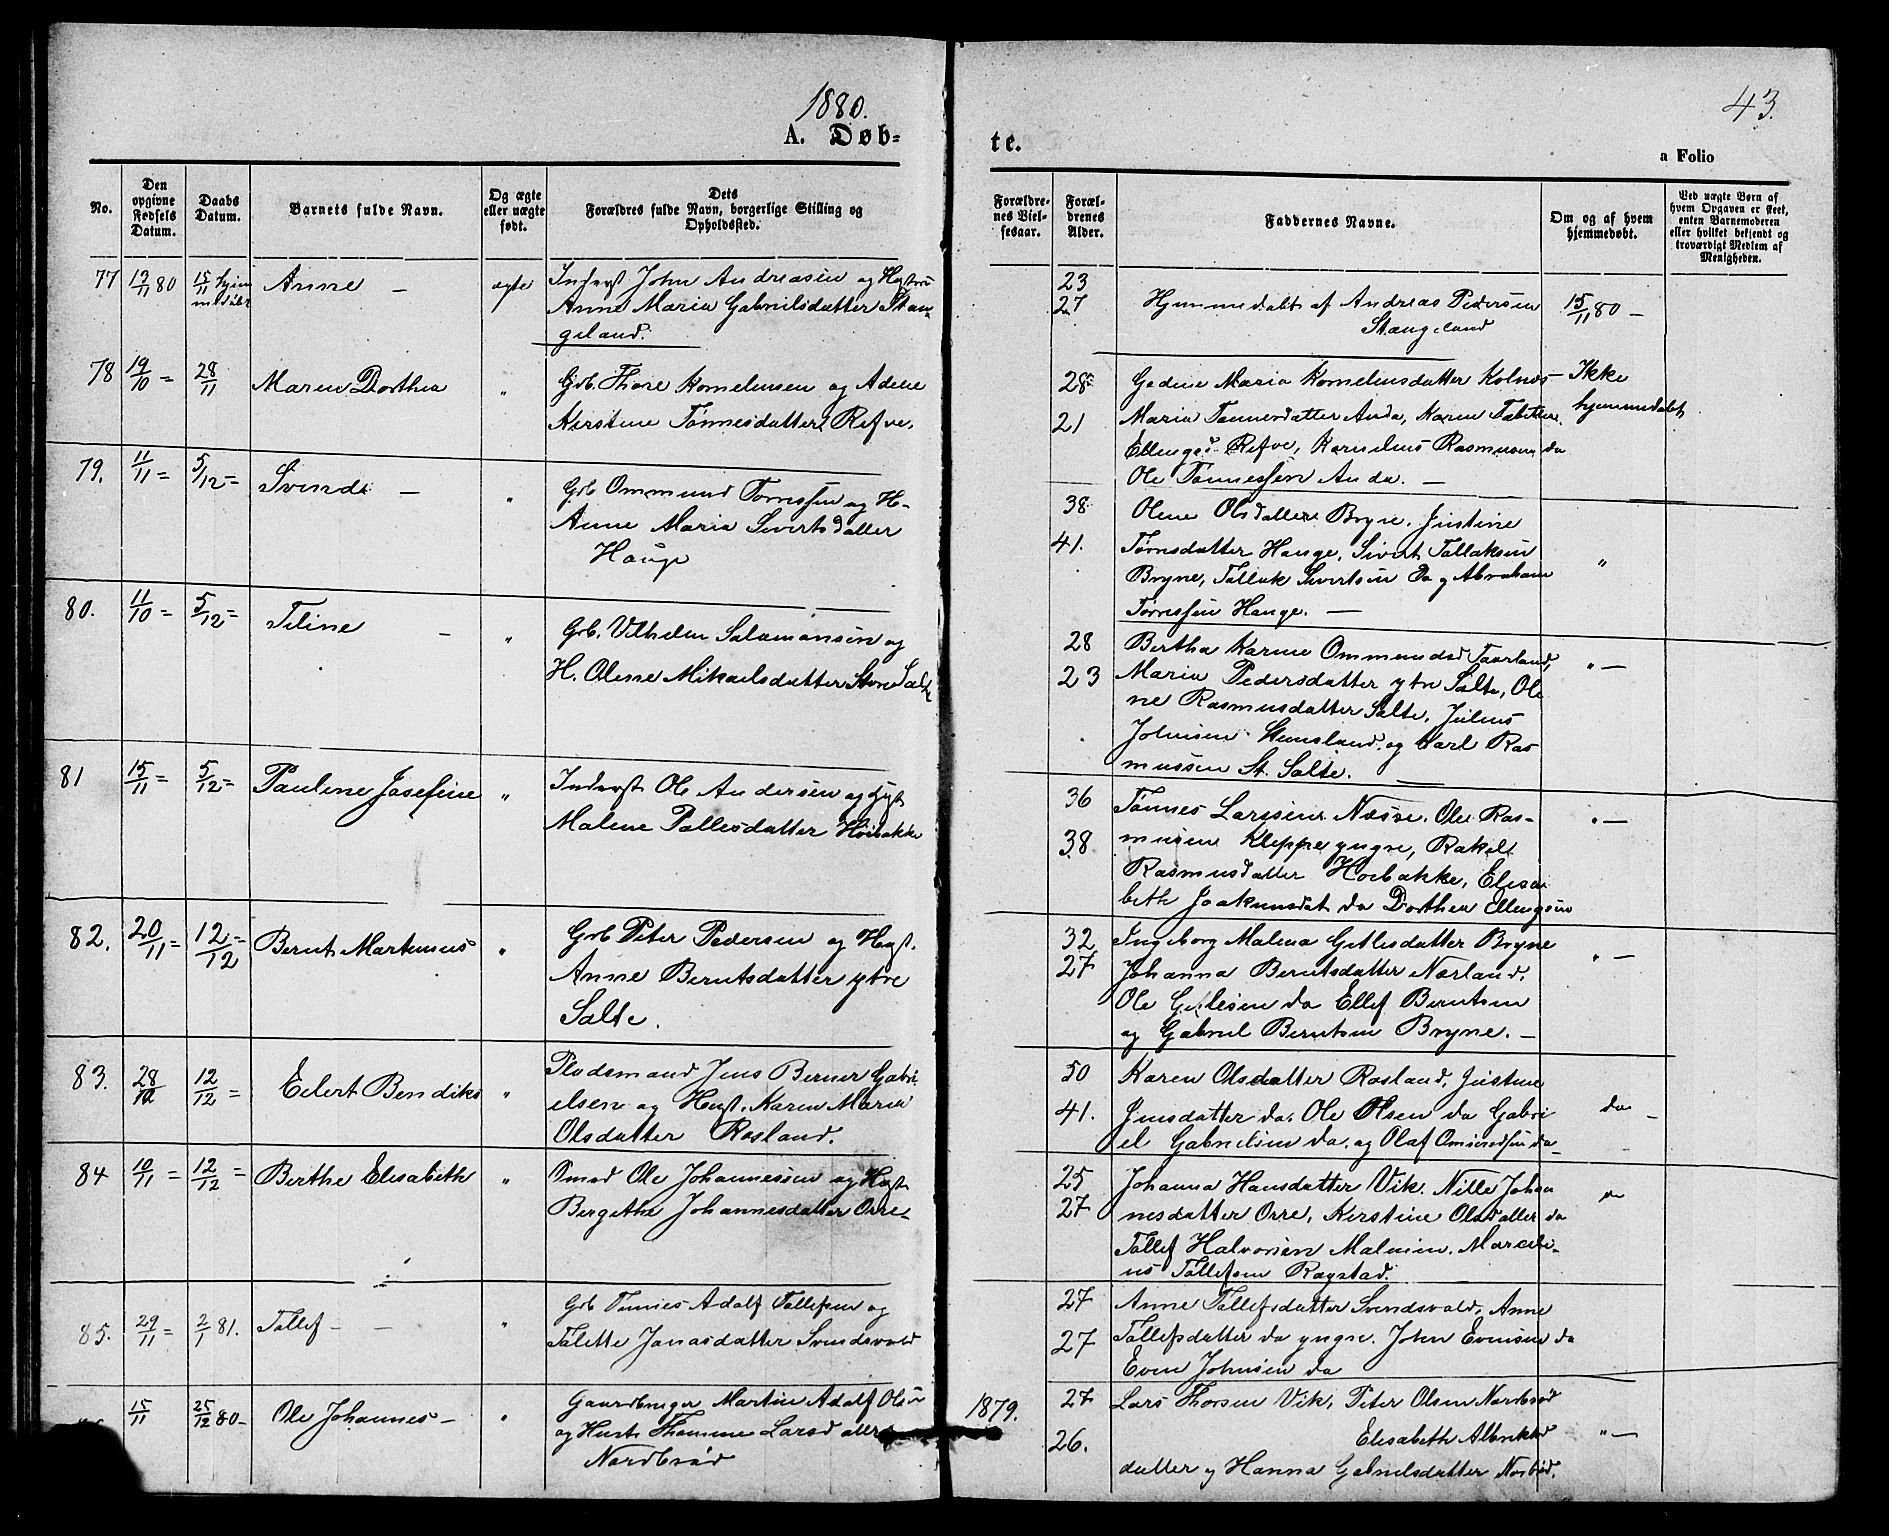 1880.
A. Døb-
te.
43.
a Folio
No.
Den opgivne Fødsels Datum.
Daabs Datum.
Barnets fulde Navn.
Og ægte eller uægte født.
Dets Forældres fulde Navn, borgerlige Stilling og Opholdssted.
Forældrenes Vielsesaar.
Forældrenes Alder.
Faddernes Navne.
Om og af hvem hjemmedøbt.
Ved uægte Børn af hvem Opgaven er skeet, enten Barnemoderen eller hvilket bekjendt og troværdigt Medlem af Menigheden.
77 12/11 80 15/11 hjem
Anne —
ægte
Inderst John Andreasen og Hustru
Anne Maria Gabrielsdatter Stan-
geland.
23
27
Hjemmedøbt af Andreas Pedersen
Stangeland
15/11 80 —
78 19/10 = 28/11
Maren Dorthea
"
Grb. Thore Kornelius​sen og Adene
Kirstine Tønnesdatter Refve.
28
21
Gedine Maria Korneliusdatter Kolnes
Maria Tønnesdatter Anda, Karen Tabitha
Ellingsd. Refve, Kornelius Rasmusen do
Ole Tønnessen Anda. —
Ikke
hjemmedøbt
79. 11/11 = 5/12 =
Svend —
"
Grb Ommund Tørressen og H.
Anne Maria Sivertsdatter
Hauge
38
41.
Olene Olsdatter Bryne, Justine
Tørresdatter Hauge, Sivert Tollaksen
Bryne, Tollak Sivertsen do og Abraham
Tørressen Hauge. —
"
80. 11/10 = 5/12 =
Teline —
"
Grb. Vilhelm Salamonsen og
H. Olene Mikaelsdatter Store Salte
28
23
Bertha Karine Ommundsd Taarland,
Maria Pedersdatter ytre Salte, Ole
ne Rasmusdatter Salte, Julius
Johnsen Stensland, og Karl Ras
mussen St. Salte. —
" —
81 15/11 = 5/12 =
Pauline Josefine
"
Inderst Ole Andersen og Hust
Malene Pallesdatter Høibakke
36
38
Tønnes Larsen Næsse, Ole Ras-
musen Kleppe yngre, Rakel
Rasmusdatter Hoibakke, Elisa
beth Joakimsdat do Dorthea Ellingsen
" —
82. 20/11 = 12/12 =
Bernt Martinius
"
Grb Peter Pedersen og Hust.
Anne Berntsdatter ytre
Salte.
32
27
Ingeborg Malena Gitlesdatter Bryne
Johanna Berntsdatter Nærland,
Ole Gitlesen do Ellef Berntsen
og Gabriel Berntsen Bryne. —
" —
83. 28/10 12/12 =
Eilert Bendiks
"
Pladsmand Jens Berner Gabri
elsen og Hust. Karen Maria
Olsdatter Rosland.
50
41.
Karen Olsdatter Rosland, Justine
Jensdatter do, Ole Olsen do Gabri
el Gabrielsen do, og Olaf Omundsen do
do —
84 10/11 = 12/12 =
Berthe Elisabeth
"
Smed Ole Johannessen og Hust
Bergithe Johannesdatter Orre.
25
27
Johanna Hansdatter Vik. Nille Johan
nesdatter Orre, Kirstine Olsdatter do
Tollef Halvorsen Malmim. Marceli-
us Tollefsen Rægstad.
"
85. 29/11 = 2/1 81.
Tollef — —
"
Grb Tønnes Adolf Tollefsen og
Talette Jonasdatter Svendsvold
27
27
Anne Tollefsdatter Svendsvold, Anne
Tollefsdatter do yngre. John Evensen do
Even Johnsen do
15/11 25/12 80 —
Ole Johannes —
"
Gaardbruger Martin Adolf Olsen
og Hustr Thomine Larsdatter
Nordbrød
1879.
27
26.
Lars Thorsen Vik, Peter Olsen Nordbrød
Elisabeth Albrikts
datter og Hanna Gabrielsdatter Norbrød.
" —